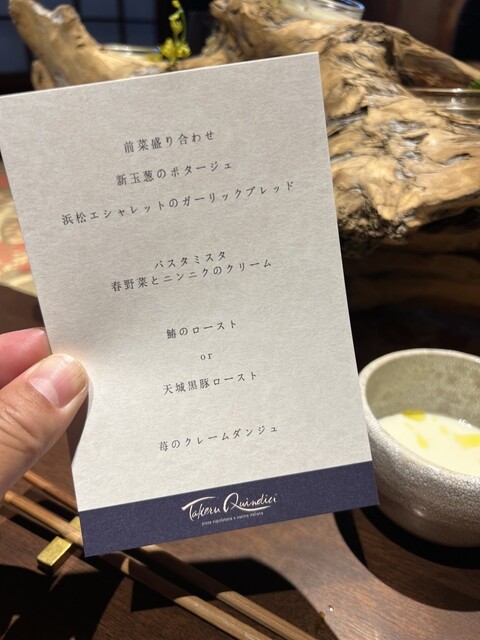 前菜盛り合わせ
新玉葱のポタージュ
浜松エシャレットのガーリックブレッド
パスタミスタ
春野菜とニンニクのクリーム
鰆のロースト
or
天城黒豚ロースト
苺のクレームダンジュ
Takeru Quindici
pizza napoletana e cucina italiana